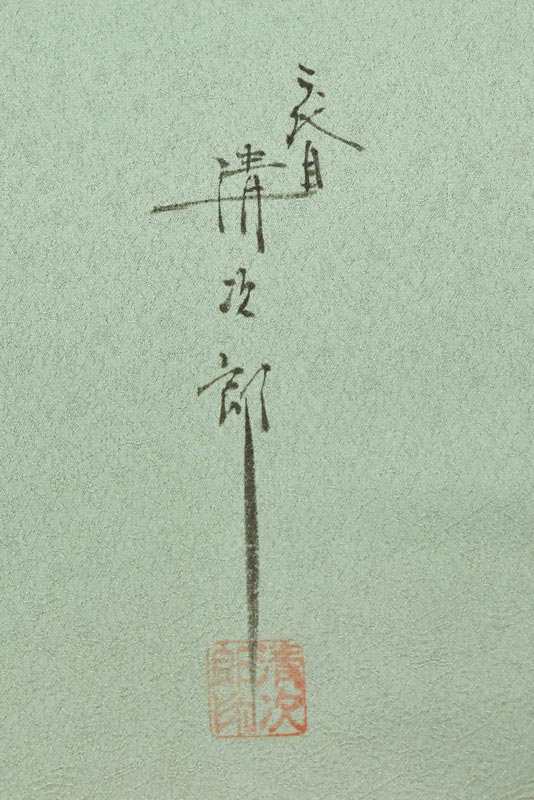 清次郎
清次
郎印